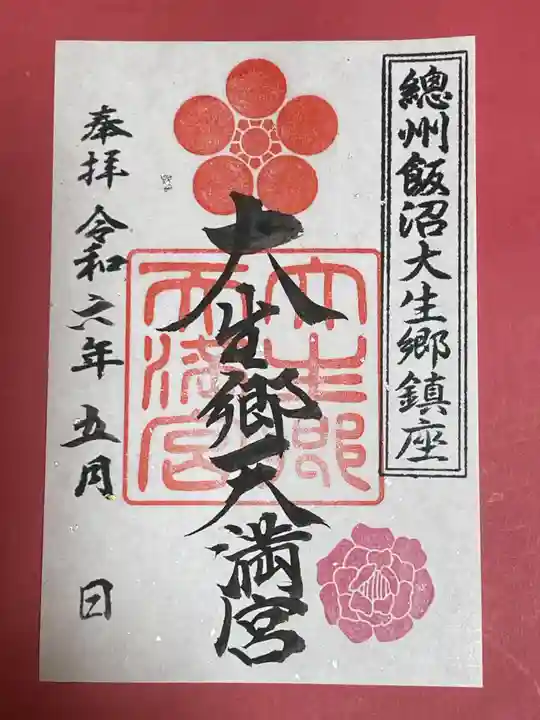 總州飯沼大生郷鎮座
大生郷天満宮
大生郷
天満宮
奉拝 令和六年五月 日